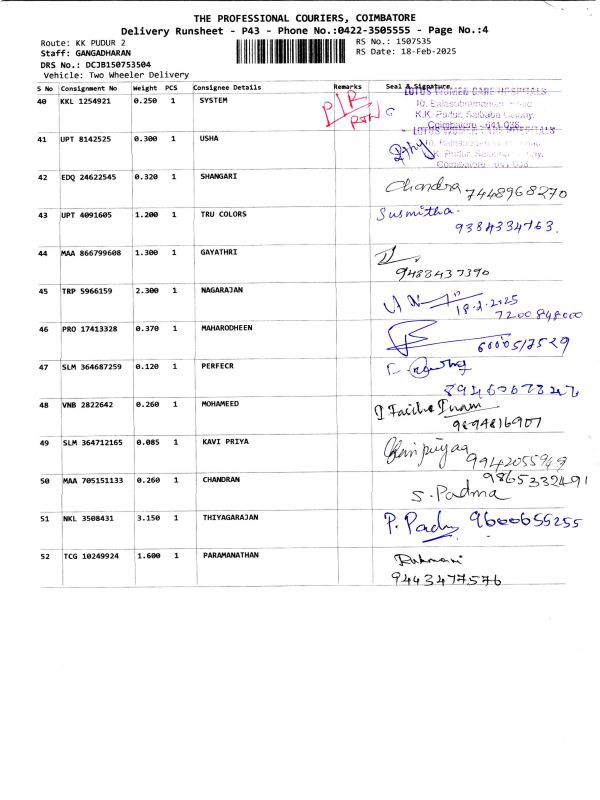 THE PROFESSIONAL COURIERS, COIMBATORE
Delivery Runsheet - P43 - Phone No.:0422-3505555 - Page No.:4
Route: KK PUDUR 2 RS No.: 1507535
Staff: GANGADHARAN RS Date: 18-Feb-2025
DRS No.: DCJB150753504
Vehicle: Two Wheeler Delivery
S No Consignment No Weight PCS Consignee Details Remarks Seal & Signature
LOTUS WOMEN CARE HOSPITALS
40 KKL 1254921 0.250 1 SYSTEM P/R RTN
K.K. Pudur, Saibaba
Coimbatore - 641 038
41 UPT 8142525 0.300 1 USHA
LOTUS WOMEN CARE HOSPITALS
Coimbatore - 641 038
42 EDQ 24622545 0.320 1 SHANGARI Chandra 7448968270
43 UPT 4091605 1.200 1 TRU COLORS Susmitha.
9384334763.
44 MAA 866799608 1.300 1 GAYATHRI
9488437390
45 TRP 5966159 2.300 1 NAGARAJAN 18-2-2025
7200848000
46 PRO 17413328 0.370 1 MAHARODHEEN
6000517529
47 SLM 364687259 0.120 1 PERFECR
48 VNB 2822642 0.260 1 MOHAMEED
9894816907
49 SLM 364712165 0.085 1 KAVI PRIYA
9942055949
50 MAA 705151133 0.260 1 CHANDRAN 9865332491
S. Padma
51 NKL 3508431 3.150 1 THIYAGARAJAN P. Padu 9600655255
52 TCG 10249924 1.600 1 PARAMANATHAN Rukmani
9443477576